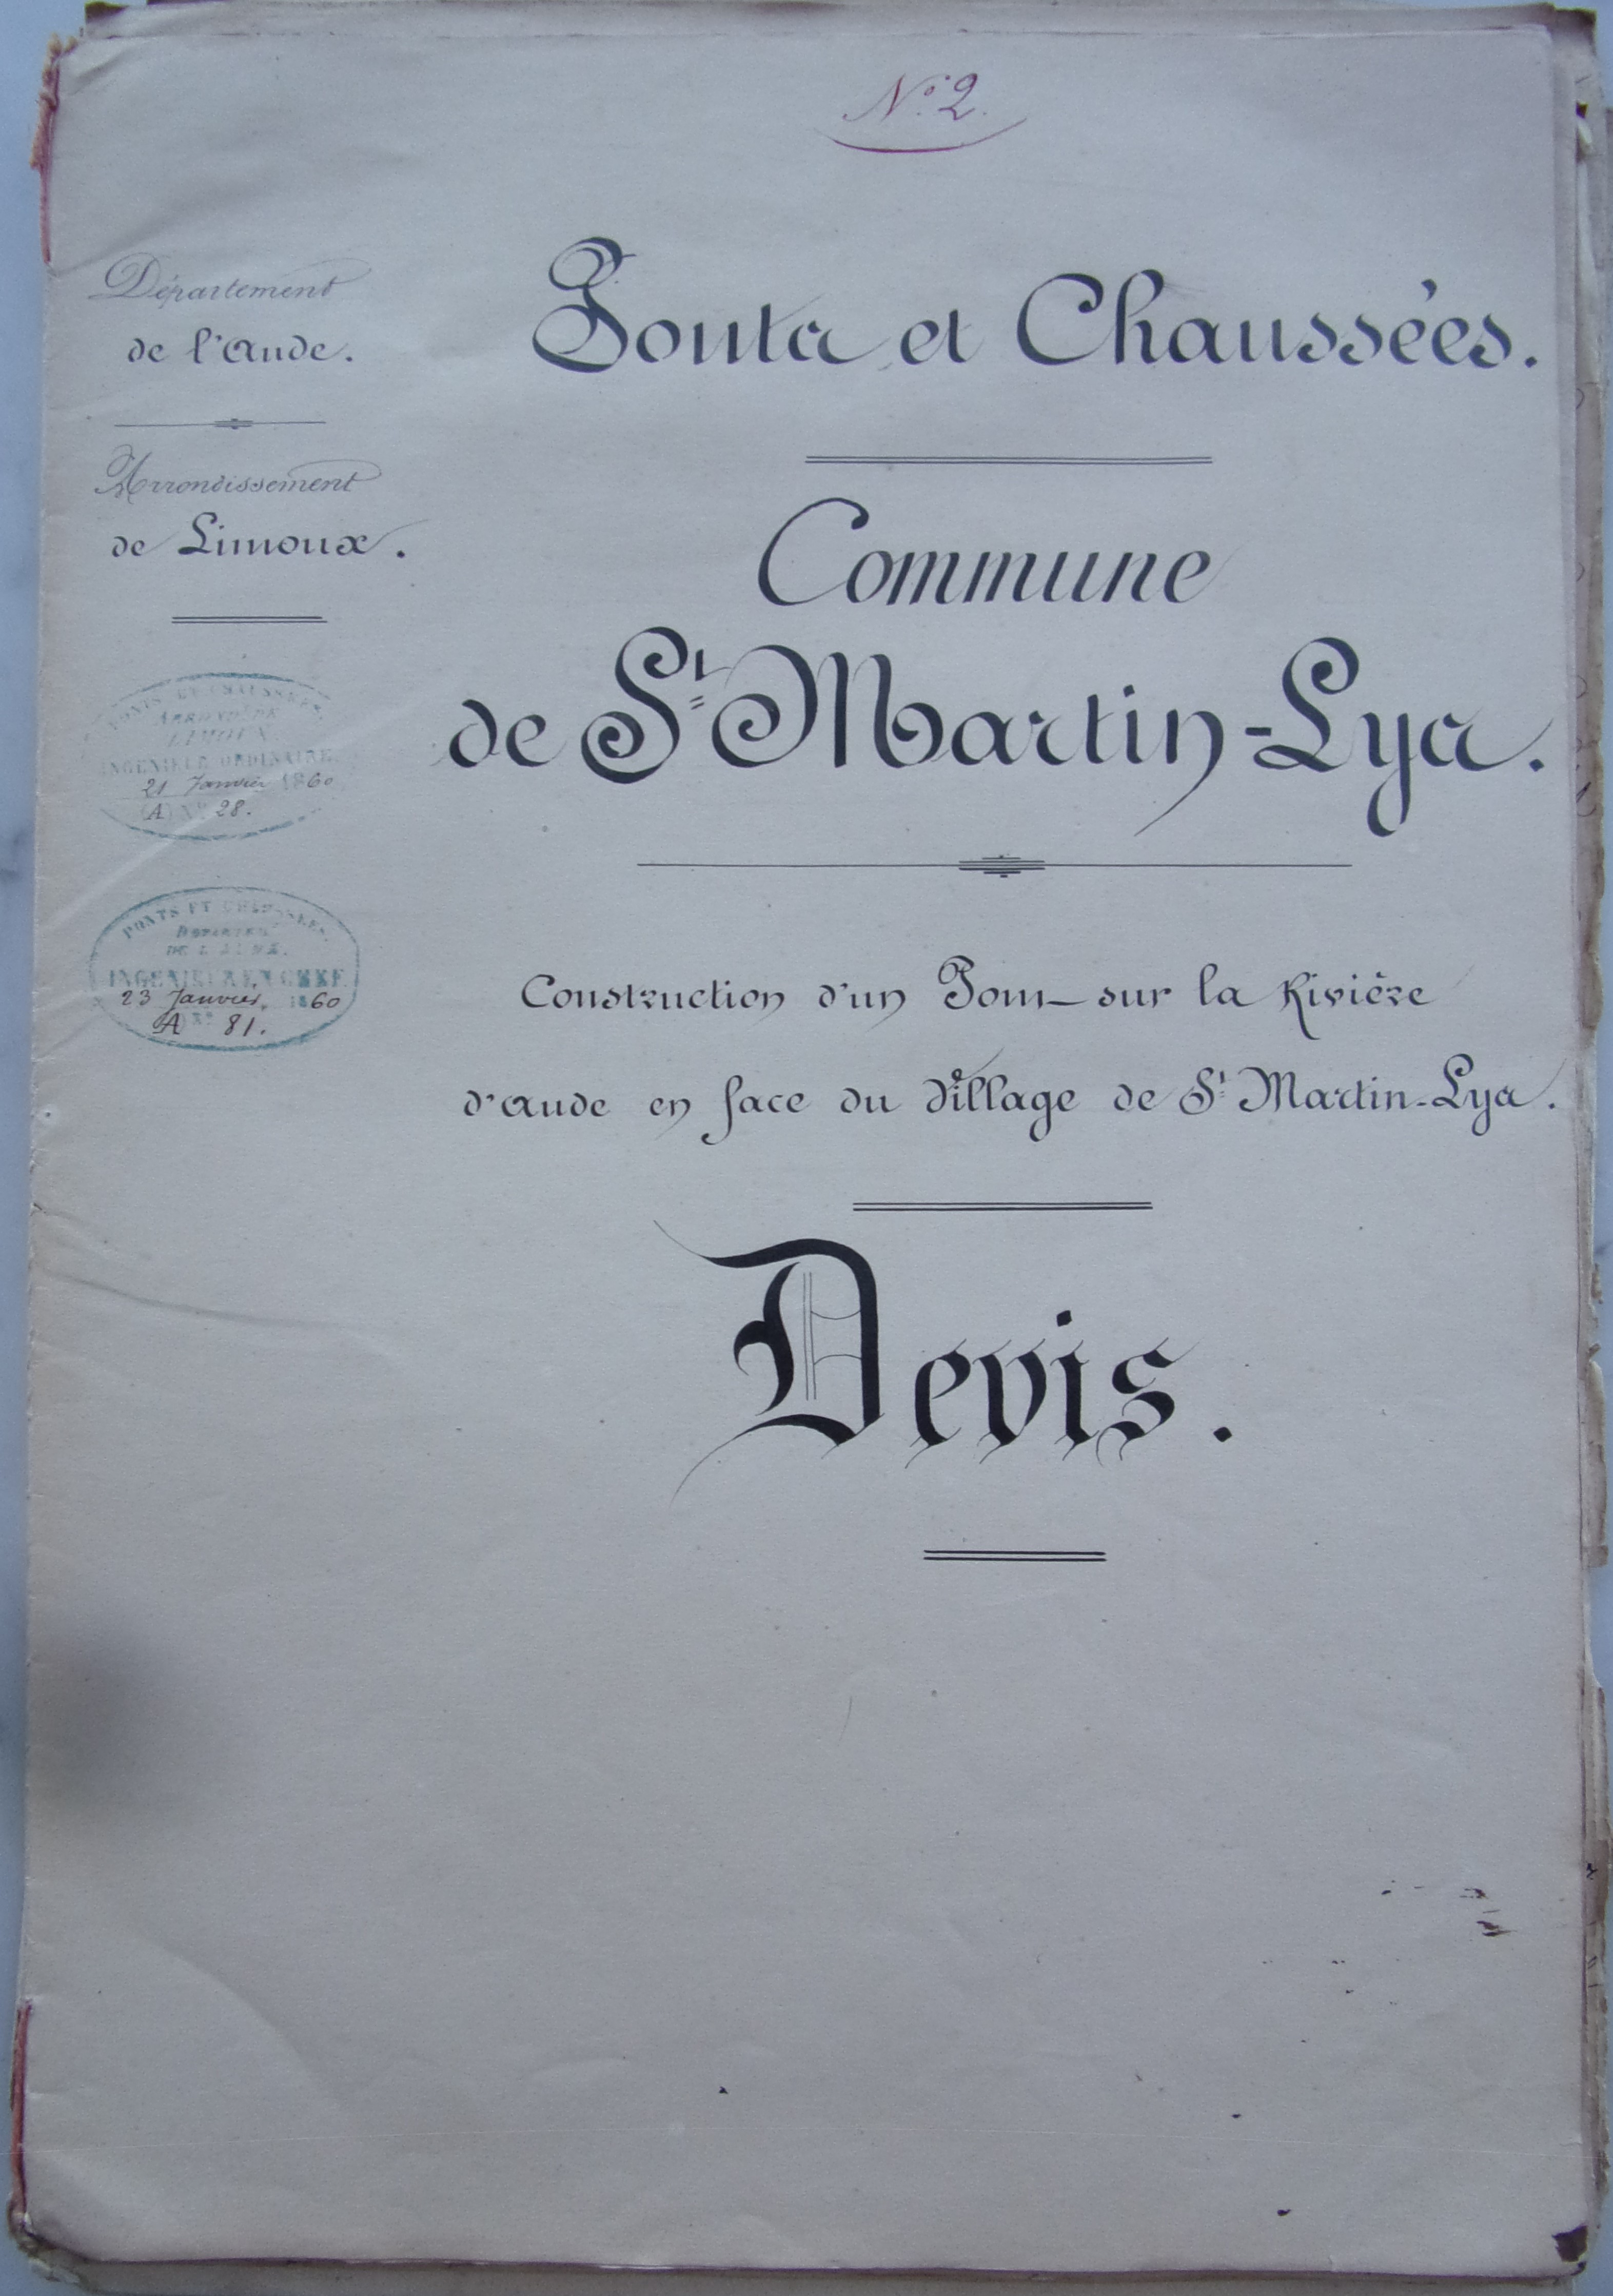 N.° 2.
Département
de l'Aude.
Arrondissement
de Limoux.
PONTS ET CHAUSSÉES.
ARRONDt DE
LIMOUX
INGÉNIEUR ORDINAIRE.
21 Janvier 1860
(A) No 28.
PONTS ET CHAUSSÉES.
DÉPARTEMt
DE L'AUDE.
INGÉNIEUR EN CHEF
23 Janvier, 1860
A No 81.
Ponts et Chaussées.
Commune
de St Martin-Lys.
Construction d'un Pont sur la Rivière
d'Aude en face du Village de St Martin-Lys.
Devis.